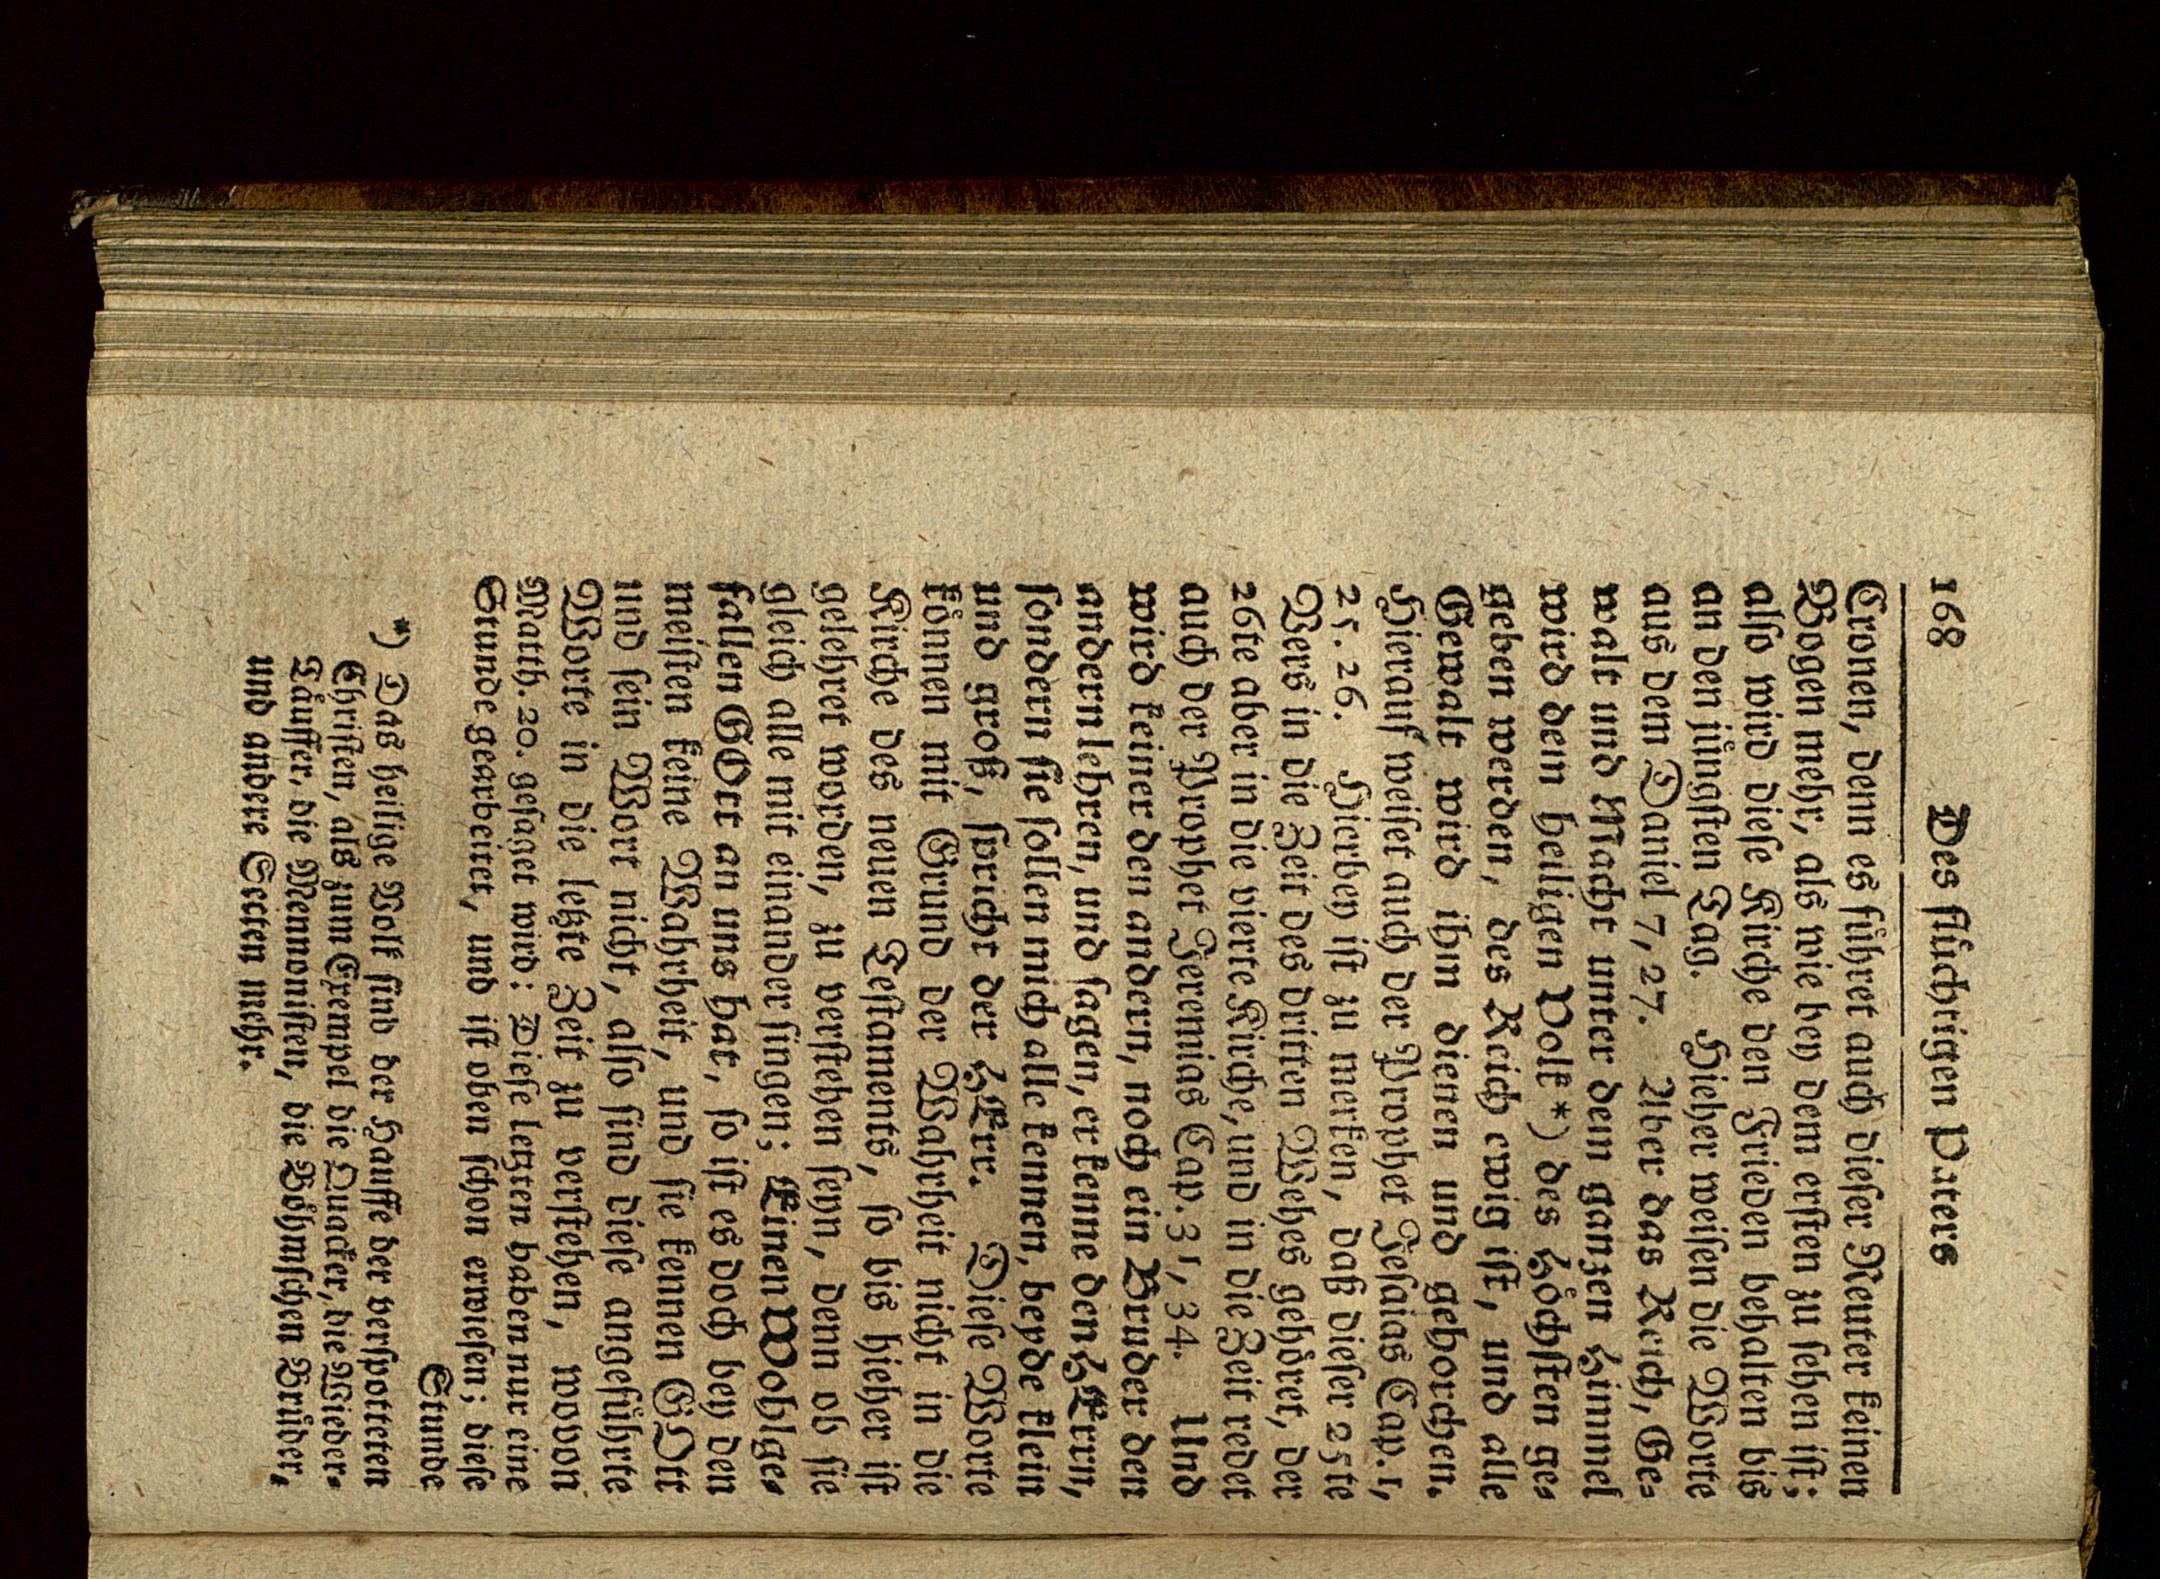 168 Des flüchtigen Paters
Cronen, denn es führet auch dieser Reuter keinen
Bogen mehr, als wie bey dem ersten zu sehen ist;
also wird diese Kirche den Frieden behalten bis
an den jüngsten Tag. Hieher weisen die Worte
aus dem Daniel 7, 27. Aber das Reich, Ge-
walt und Macht unter dem ganzen Himmel
wird dem heiligen Volk *) des Höchsten ge-
geben werden, des Reich ewig ist, und alle
Gewalt wird ihm dienen und gehorchen.
Hierauf weiset auch der Prophet Jesaias Cap. 1,
25. 26. Hierbey ist zu merken, daß dieser 25ste
Vers in die Zeit des dritten Wehes gehöret, der
26te aber in die vierte Kirche, und in die Zeit redet
auch der Prophet Jeremias Cap. 31, 34. Und
wird keiner den andern, noch ein Bruder den
andern lehren, und sagen, erkenne den HErrn,
sondern sie sollen mich alle kennen, beyde klein
und groß, spricht der HErr. Diese Worte
können mit Grund der Wahrheit nicht in die
Kirche des neuen Testaments, so bis hieher ist
gelehret worden, zu verstehen seyn, denn ob sie
gleich alle mit einander singen; Einen Wohlge-
fallen GOtt an uns hat, so ist es doch bey den
meisten keine Wahrheit, und sie kennen GOtt
und sein Wort nicht, also sind diese angeführte
Worte in die letzte Zeit zu verstehen, wovon
Matth. 20. gesaget wird: Diese letzten haben nur eine
Stunde gearbeitet, und ist oben schon erwiesen; diese
Stunde
*) Das heilige Volk sind der Hauffe der verspotteten
Christen, als zum Exempel die Quacker, die Wieder-
Täuffer, die Mennonisten, die Böhmschen Brüder,
und andere Secten mehr.